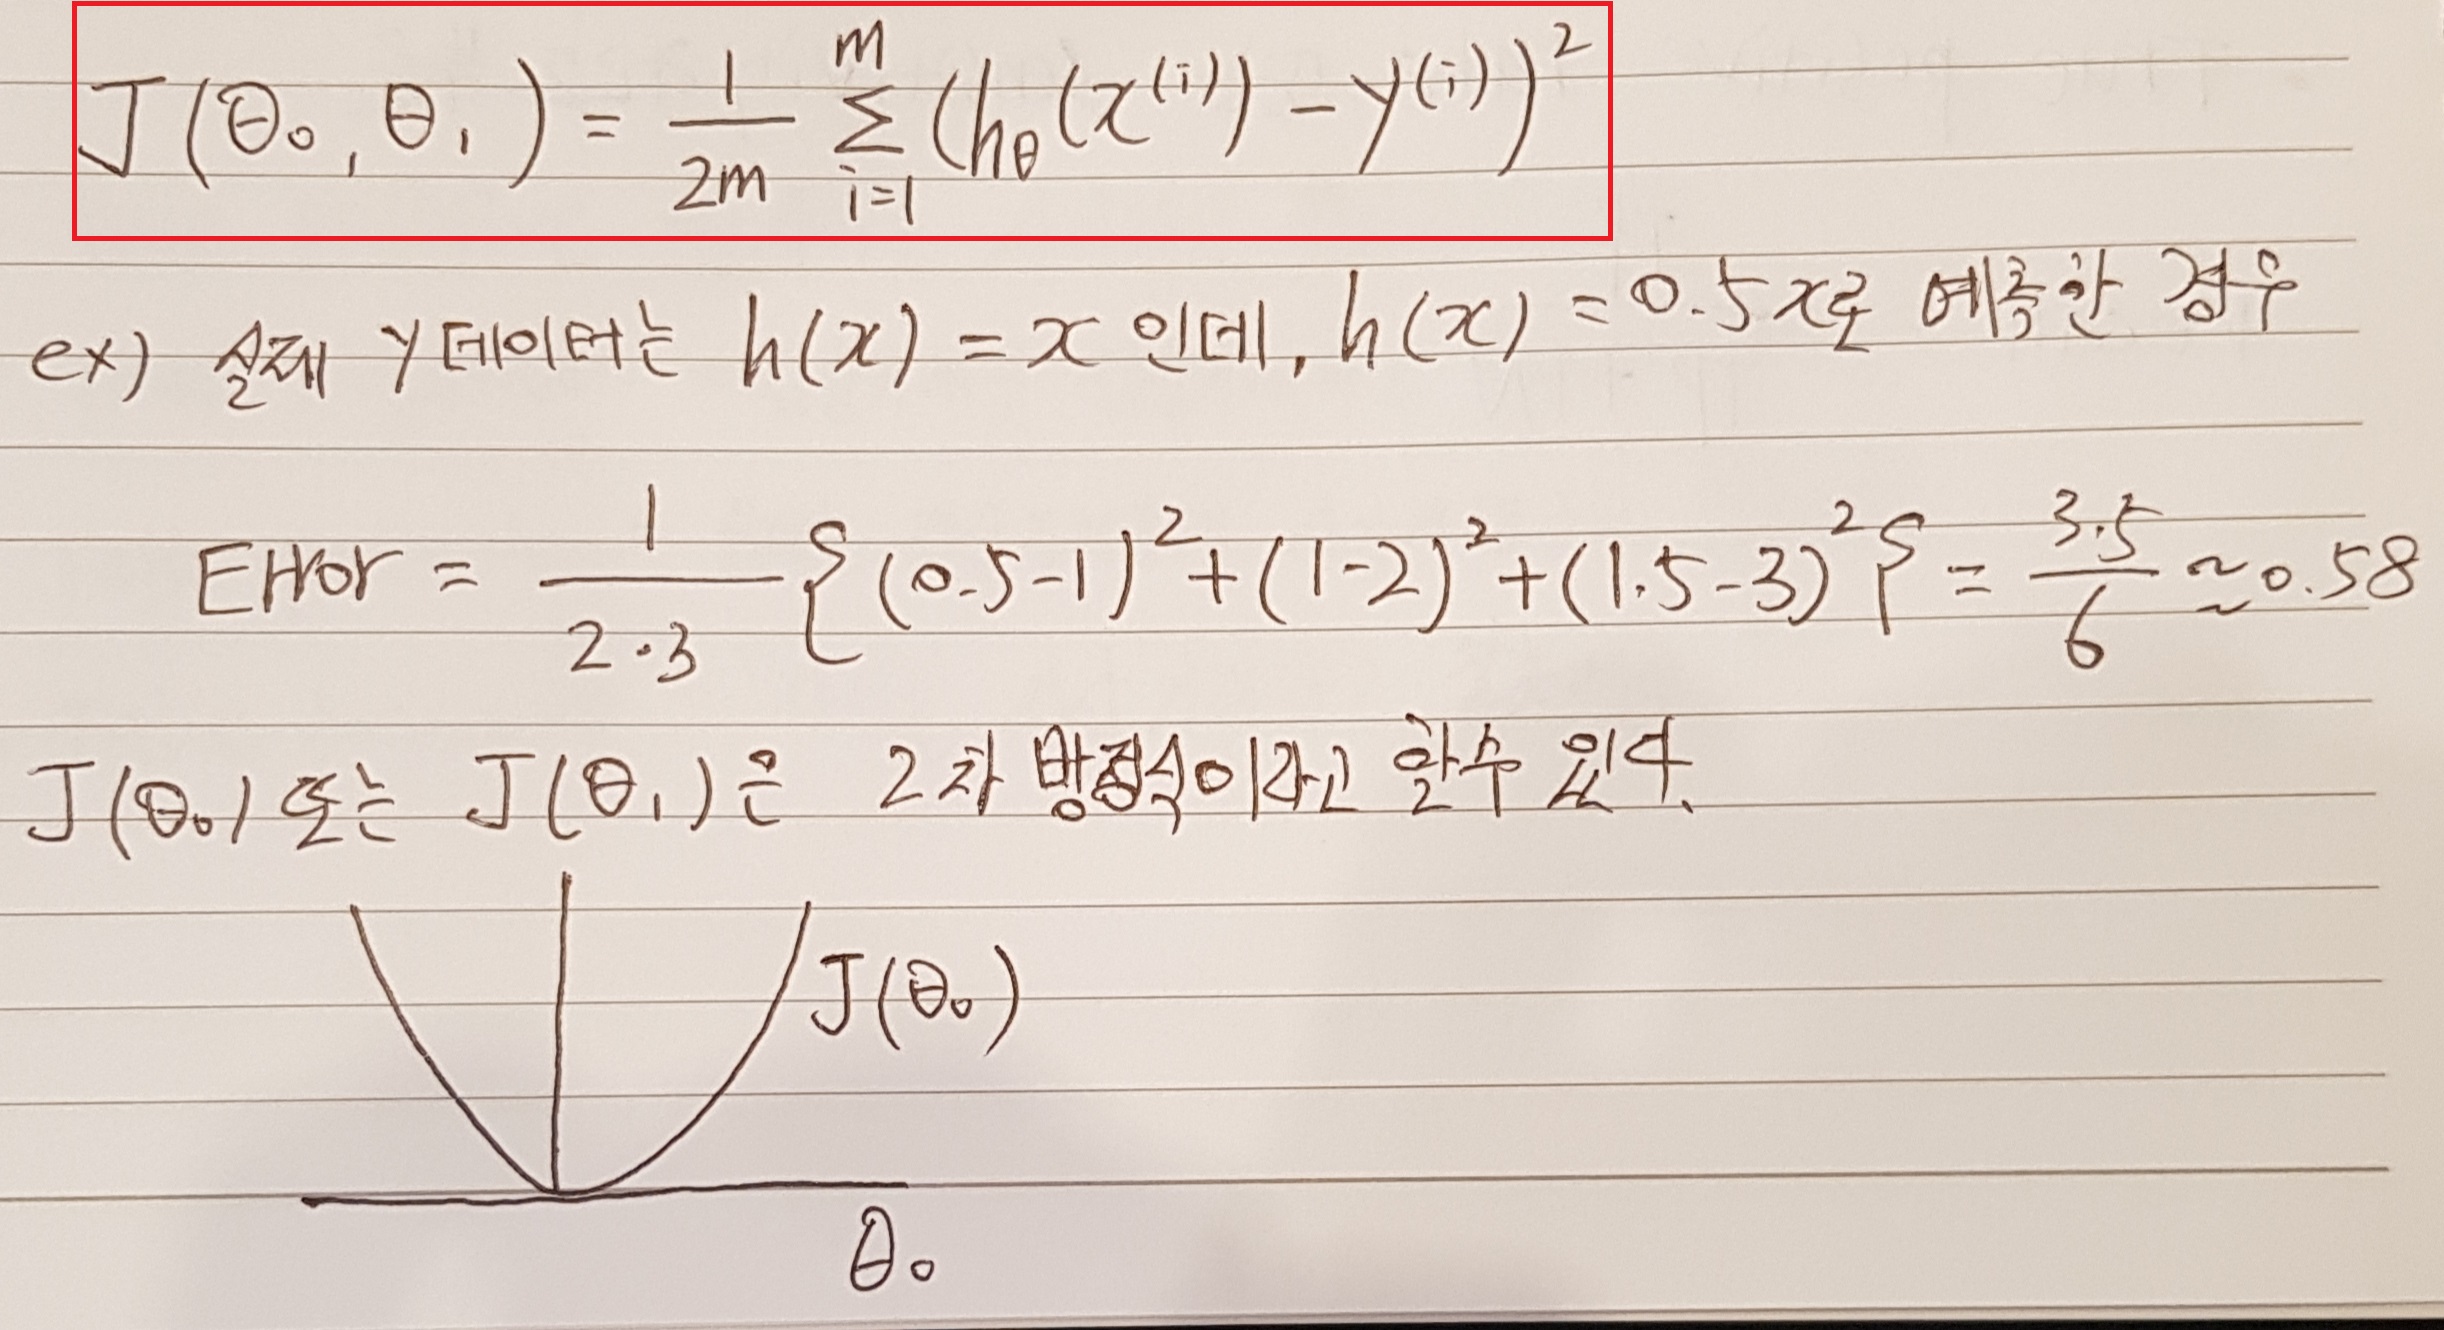 J(θ₀, θ₁) = 1/2m Σ_{i=1}^{m} (h_θ(x^(i)) - y^(i))²
ex) 실제 y데이터는 h(x) = x 인데, h(x) = 0.5x로 예측한 경우
Error = 1/2·3 {(0.5-1)² + (1-2)² + (1.5-3)²} = 3.5/6 ≈ 0.58
J(θ₀) 또는 J(θ₁)은 2차 방정식이라고 할수 있다.
J(θ₀)
θ₀